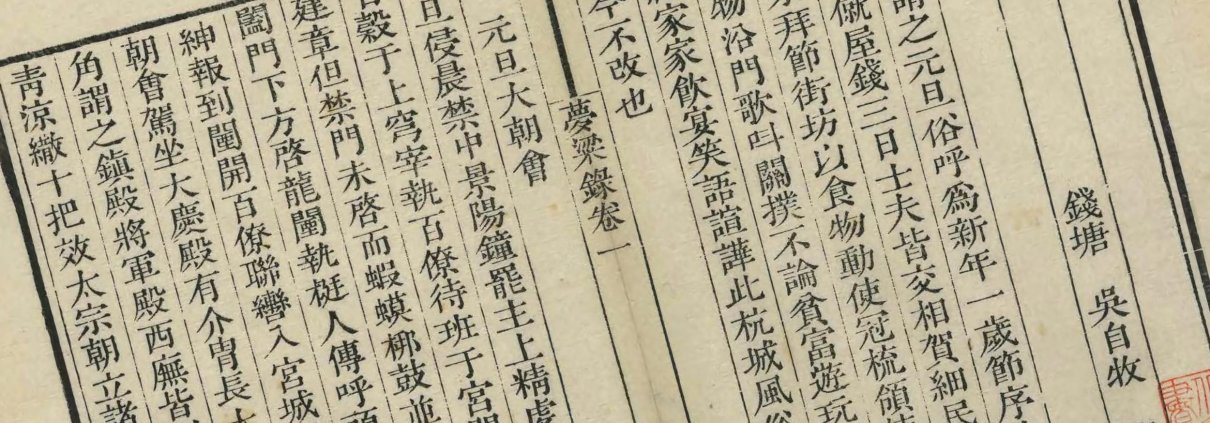 錢塘 吳自牧
謂之元旦俗呼爲新年一歲節序
僦屋錢三日士夫皆交相賀細民
拜節街坊以食物動使冠梳領
物沿門歌叫關撲不論貧富遊玩
家家飲宴笑語諠譁此杭城風俗
今不改也
夢粱錄卷一
元旦大朝會
旦侵晨禁中景陽鐘罷主上精虔
穀于上穹宰執百僚待班于宮
建章但禁門未啓而蝦蟆梆鼓並
闔門下方啓龍闈執梃人傳呼頭
紳報到闈開百僚聯轡入宮城
朝會駕坐大慶殿有介冑長
角謂之鎮殿將軍殿西廡皆
青涼繖十把效太宗朝立諸